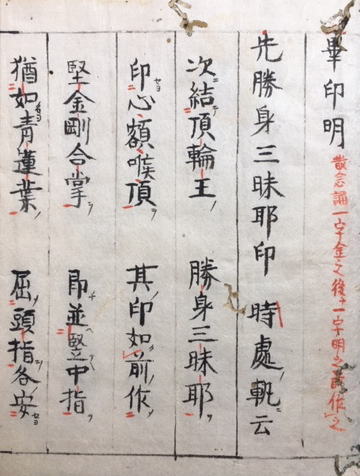 畢印明 散念誦一字金之後十一字明之
先勝身三昧耶印 時處軌云
次結頂輪王 勝身三昧耶
印心額喉頂 其印如前作
堅金剛合掌 即並竪中指
猶如青蓮葉 屈頭指各安